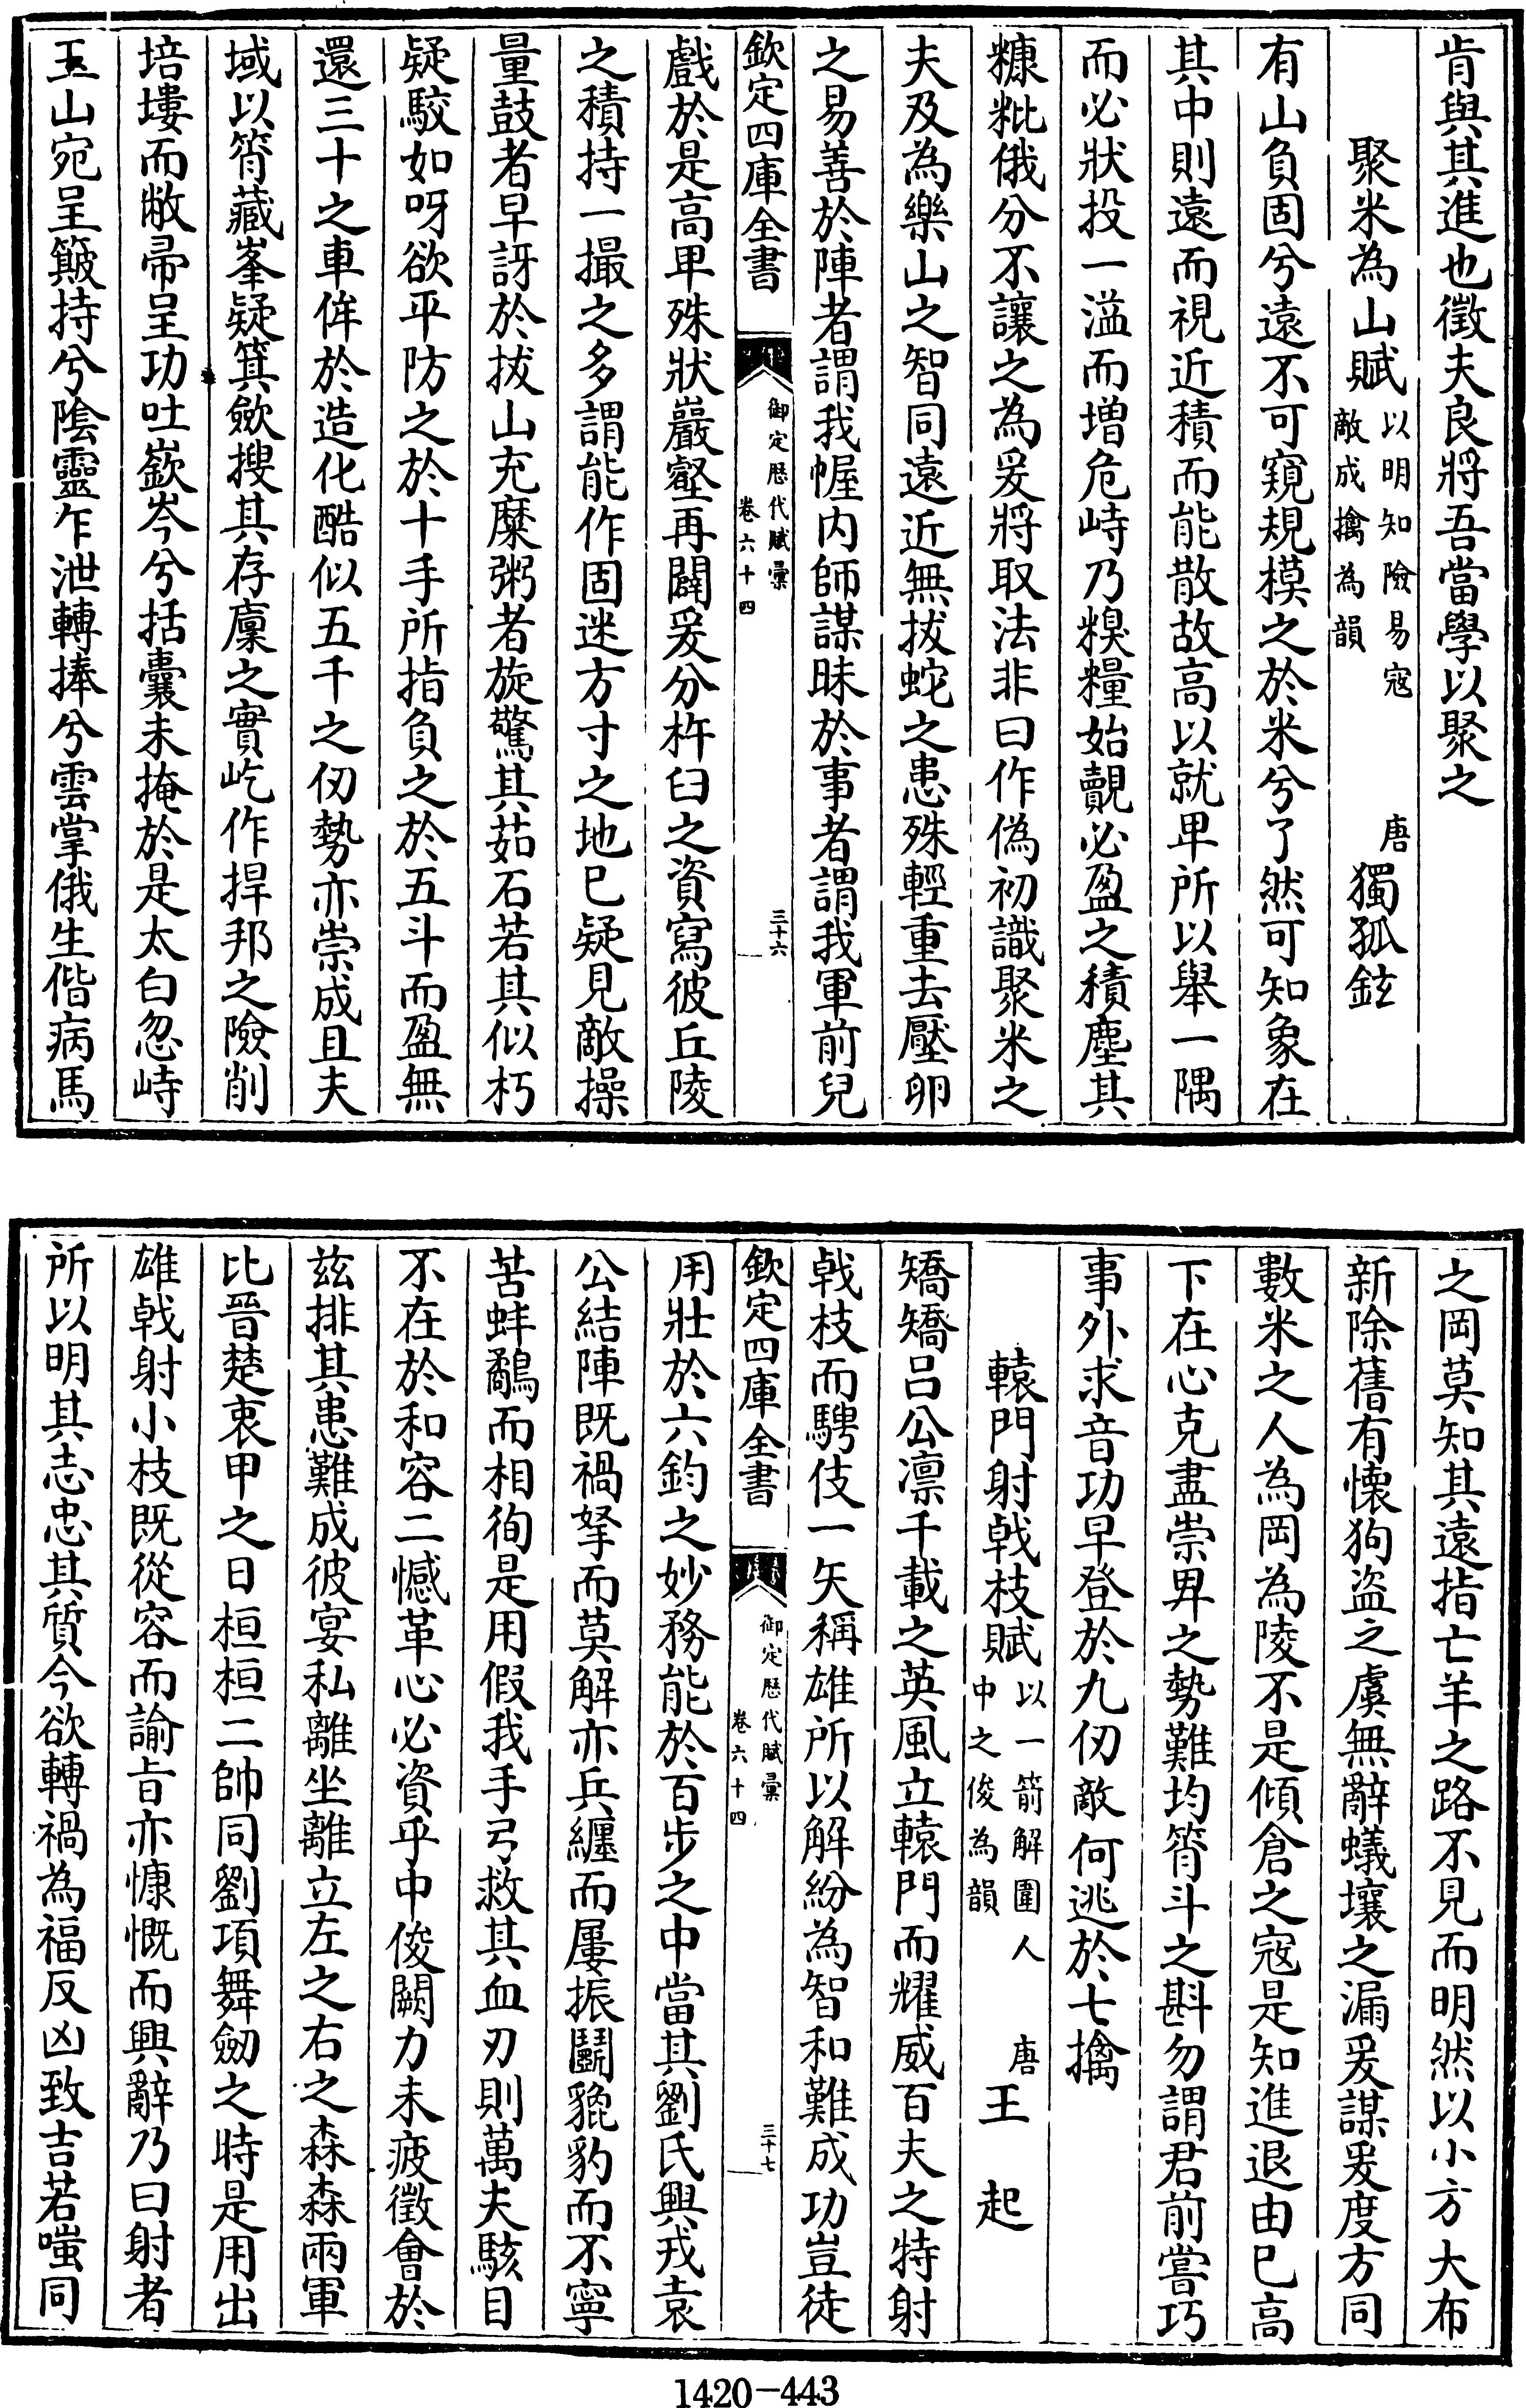 肯與其進也徵夫良將吾當學以聚之
聚米為山賦以明知險易寇敵成擒為韻 唐獨孤鉉
有山負固兮遠不可窺規模之於米兮了然可知象在
其中則遠而視近積而能散故高以就卑所以舉一隅
而必狀投一溢而增危峙乃糗糧始覿必盈之積塵其
糠粃俄分不讓之為爰將取法非曰作偽初識聚米之
夫及為樂山之智同遠近無拔蛇之患殊輕重去壓卵
之易善於陣者謂我幄内師謀昧於事者謂我軍前兒
欽定四庫全書 御定歷代賦彙 卷六十四 三十六
戲於是高卑殊狀巖壑再闢爰分杵臼之資寫彼丘陵
之積持一撮之多謂能作固迷方寸之地已疑見敵操
量鼓者早訝於拔山充糜粥者旋驚其茹石若其似朽
疑駮如呀欲平防之於十手所指負之於五斗而盈無
還三十之車侔於造化酷似五千之仞勢亦崇成且夫
域以筲藏峯疑箕斂搜其存廩之實屹作捍邦之險削
培塿而敝帚呈功吐嶔岑兮括囊未掩於是太白忽峙
玉山宛呈簸持兮陰靈乍泄轉捧兮雲掌俄生偕病馬
之岡莫知其遠指亡羊之路不見而明然以小方大布
新除舊有懷狗盜之虞無辭蟻壤之漏爰謀爰度方同
數米之人為岡為陵不是傾倉之寇是知進退由已高
下在心克盡崇卑之勢難均筲斗之斟勿謂君前嘗巧
事外求音功早登於九仞敵何逃於七擒
轅門射戟枝賦以一箭解圍人中之俊為韻 唐王起
矯矯呂公凛千載之英風立轅門而耀威百夫之特射
戟枝而騁伎一矢稱雄所以解紛為智和難成功豈徒
欽定四庫全書 御定歷代賦彙 卷六十四 三十七
用壯於六鈞之妙務能於百步之中當其劉氏興戎袁
公結陣既禍拏而莫解亦兵纏而屢振鬭貔豹而不寧
苦蚌鷸而相徇是用假我手弓救其血刃則萬夫駭目
不在於和容二憾革心必資乎中俊闕力未疲徵會於
兹排其患難成彼宴私離坐離立左之右之森森兩軍
比晉楚衷甲之日桓桓二帥同劉項舞劒之時是用出
雄戟射小枝既從容而諭旨亦慷慨而興辭乃曰射者
所以明其志忠其質今欲轉禍為福反凶致吉若嗤同
1420-443